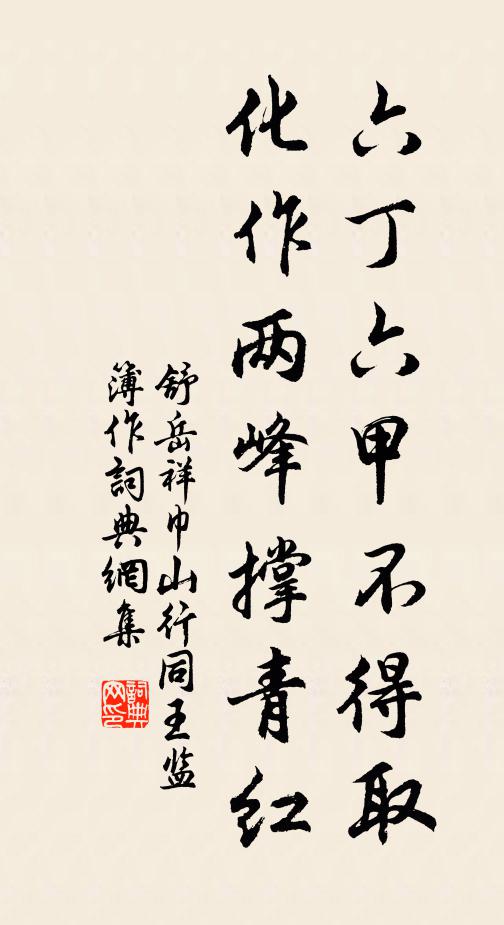 六丁六甲不得取
化作两峰撑青红
舒岳祥巾山行同王监
簿作詞典網集
詞典网印